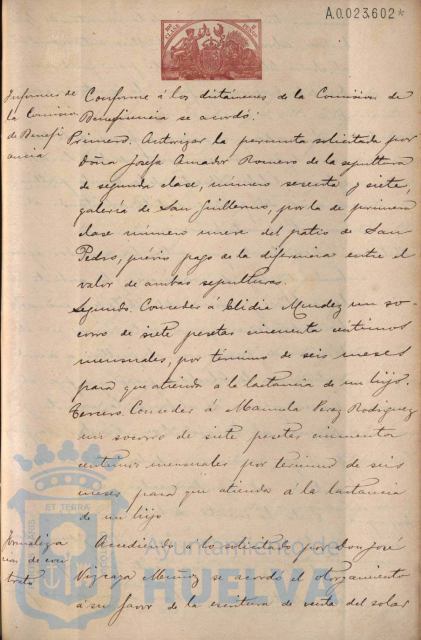 A.0.023.602*
Informes de
la Comisión
de Benefi
cencia
Conforme á los dictámenes de la Comisión de
Beneficencia se acordó:
Primero. Autorizar la permuta solicitada por
Doña Josefa Amador Romero de la sepultura
de segunda clase, número sesenta y siete,
galería de San Guillermo, por la de primera
clase número nueve del patio de San
Pedro, prévio pago de la diferencia entre el
valor de ambas sepulturas.
Segundo. Conceder á Elidia Mendez un so-
corro de siete pesetas cincuenta céntimos
mensuales, por término de seis meses
para que atienda á la lactancia de un hijo.
Tercero. Conceder á Manuela Perez Rodriguez
un socorro de siete pesetas cincuenta
céntimos mensuales por término de seis
meses para que atienda á la lactancia
de un hijo
Formaliza
cion de con
trato
Accediendo á lo solicitado por Don José
Muñoz se acordó el otorgamiento
á su favor de la escritura de venta del solar
ET TERRA
Ayuntamiento de
HUELVA